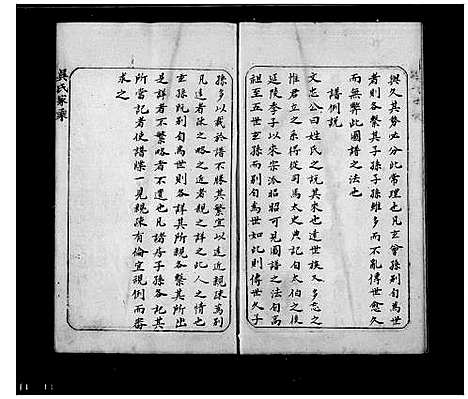 與久其勢必分此常理也凡玄曾孫列自為世
者則各繫其子孫子孫雖多而不亂傳世愈久
而無弊此圖譜之法也
譜例說
文忠公曰姓氏之說其來也遠世族又多忘之
惟君立之系得從司馬太史典記自太伯之後
延陵季子以來宗派昭昭可見圖譜之法自高
祖至五世玄孫而別自為世如此則傳世久子
孫多以載於譜不勝其繁宜以遠近親疎為別
凡遠者疎之略之近者親之詳之此人之情也
玄孫既別自為世則各詳其所親各繫其所出
是詳者不繁略者不遺也凡諸房子孫各紀其
所當記者使譜牒一見親疎有倫宜視例而審
求之
吳氏家乘